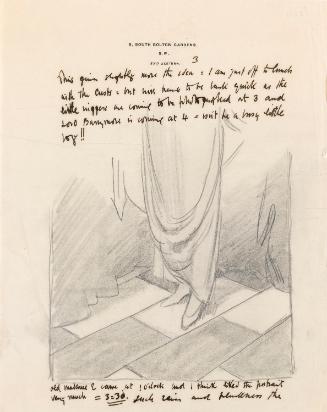 5, SOUTH BOLTON GARDENS,
S.W.
3
This gives slightly more the idea = I am just off to lunch
with the Custs = but have to be back quick as the
little niggers are coming to be photographed at 3 and
Lord Barrymore is coming at 4 = isn't he a busy little
boy!!
old madame E came at 1 o'clock and I think liked the portrait
very much = 3=30. such rain and the